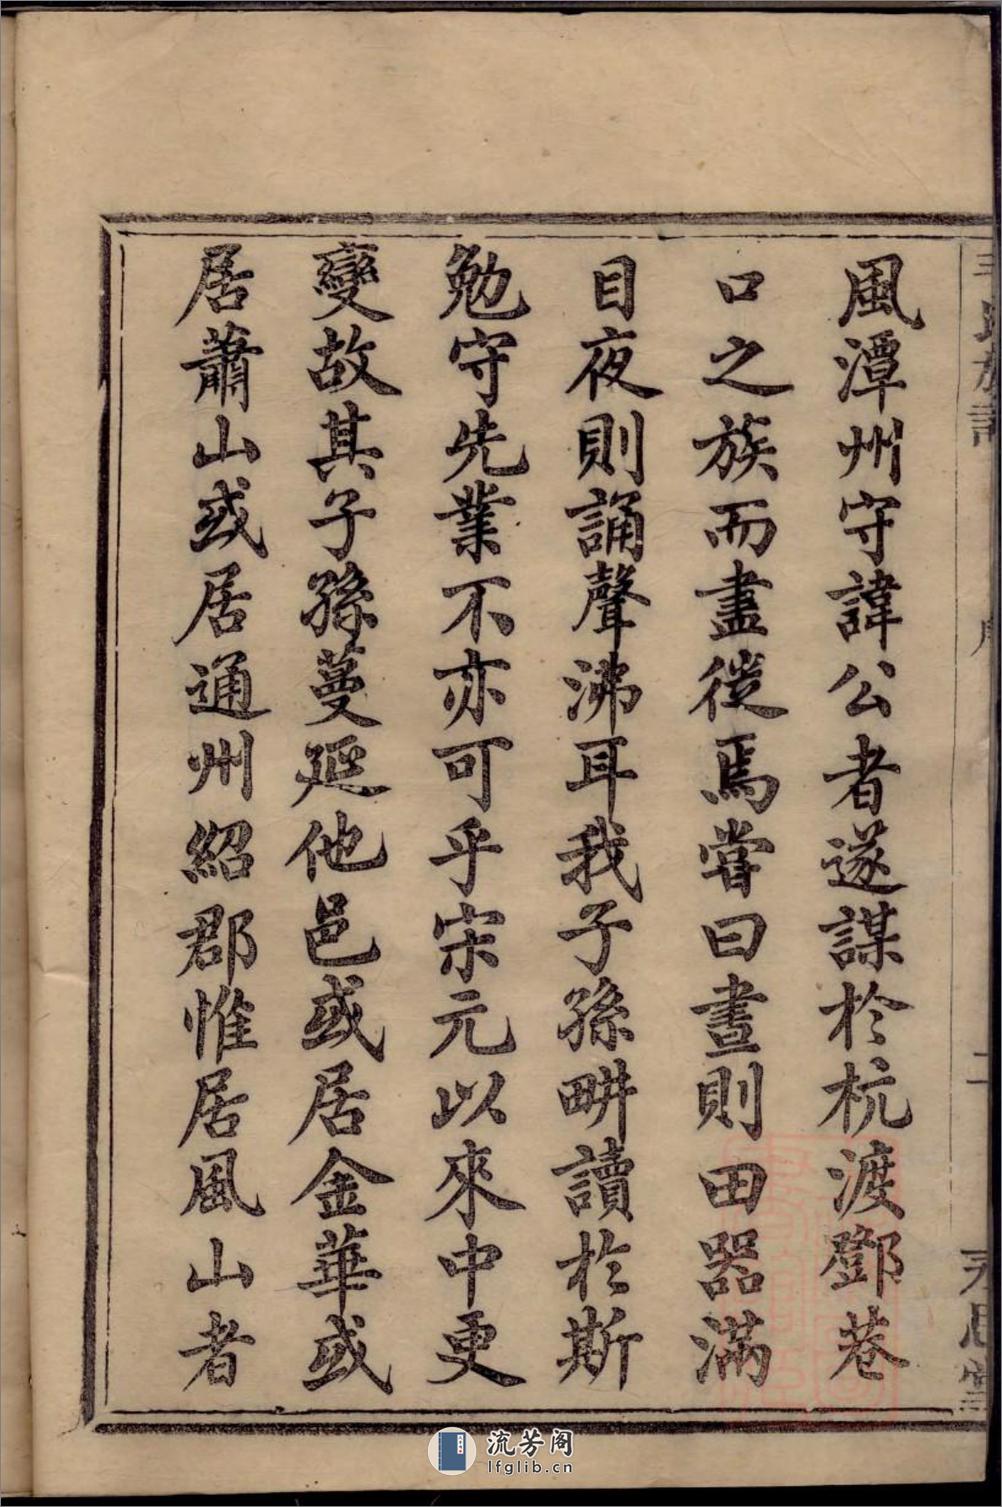 風潭州守諱公者遂謀於杭渡鄧巷
口之族而盡徙焉嘗曰晝則田器滿
目夜則誦聲沸耳我子孫畊讀於斯
勉守先業不亦可乎宋元以來中更
變故其子孫蔓延他邑或居金華或
居蕭山或居通州紹郡惟居風山者
流芳阁
lfglib.cn